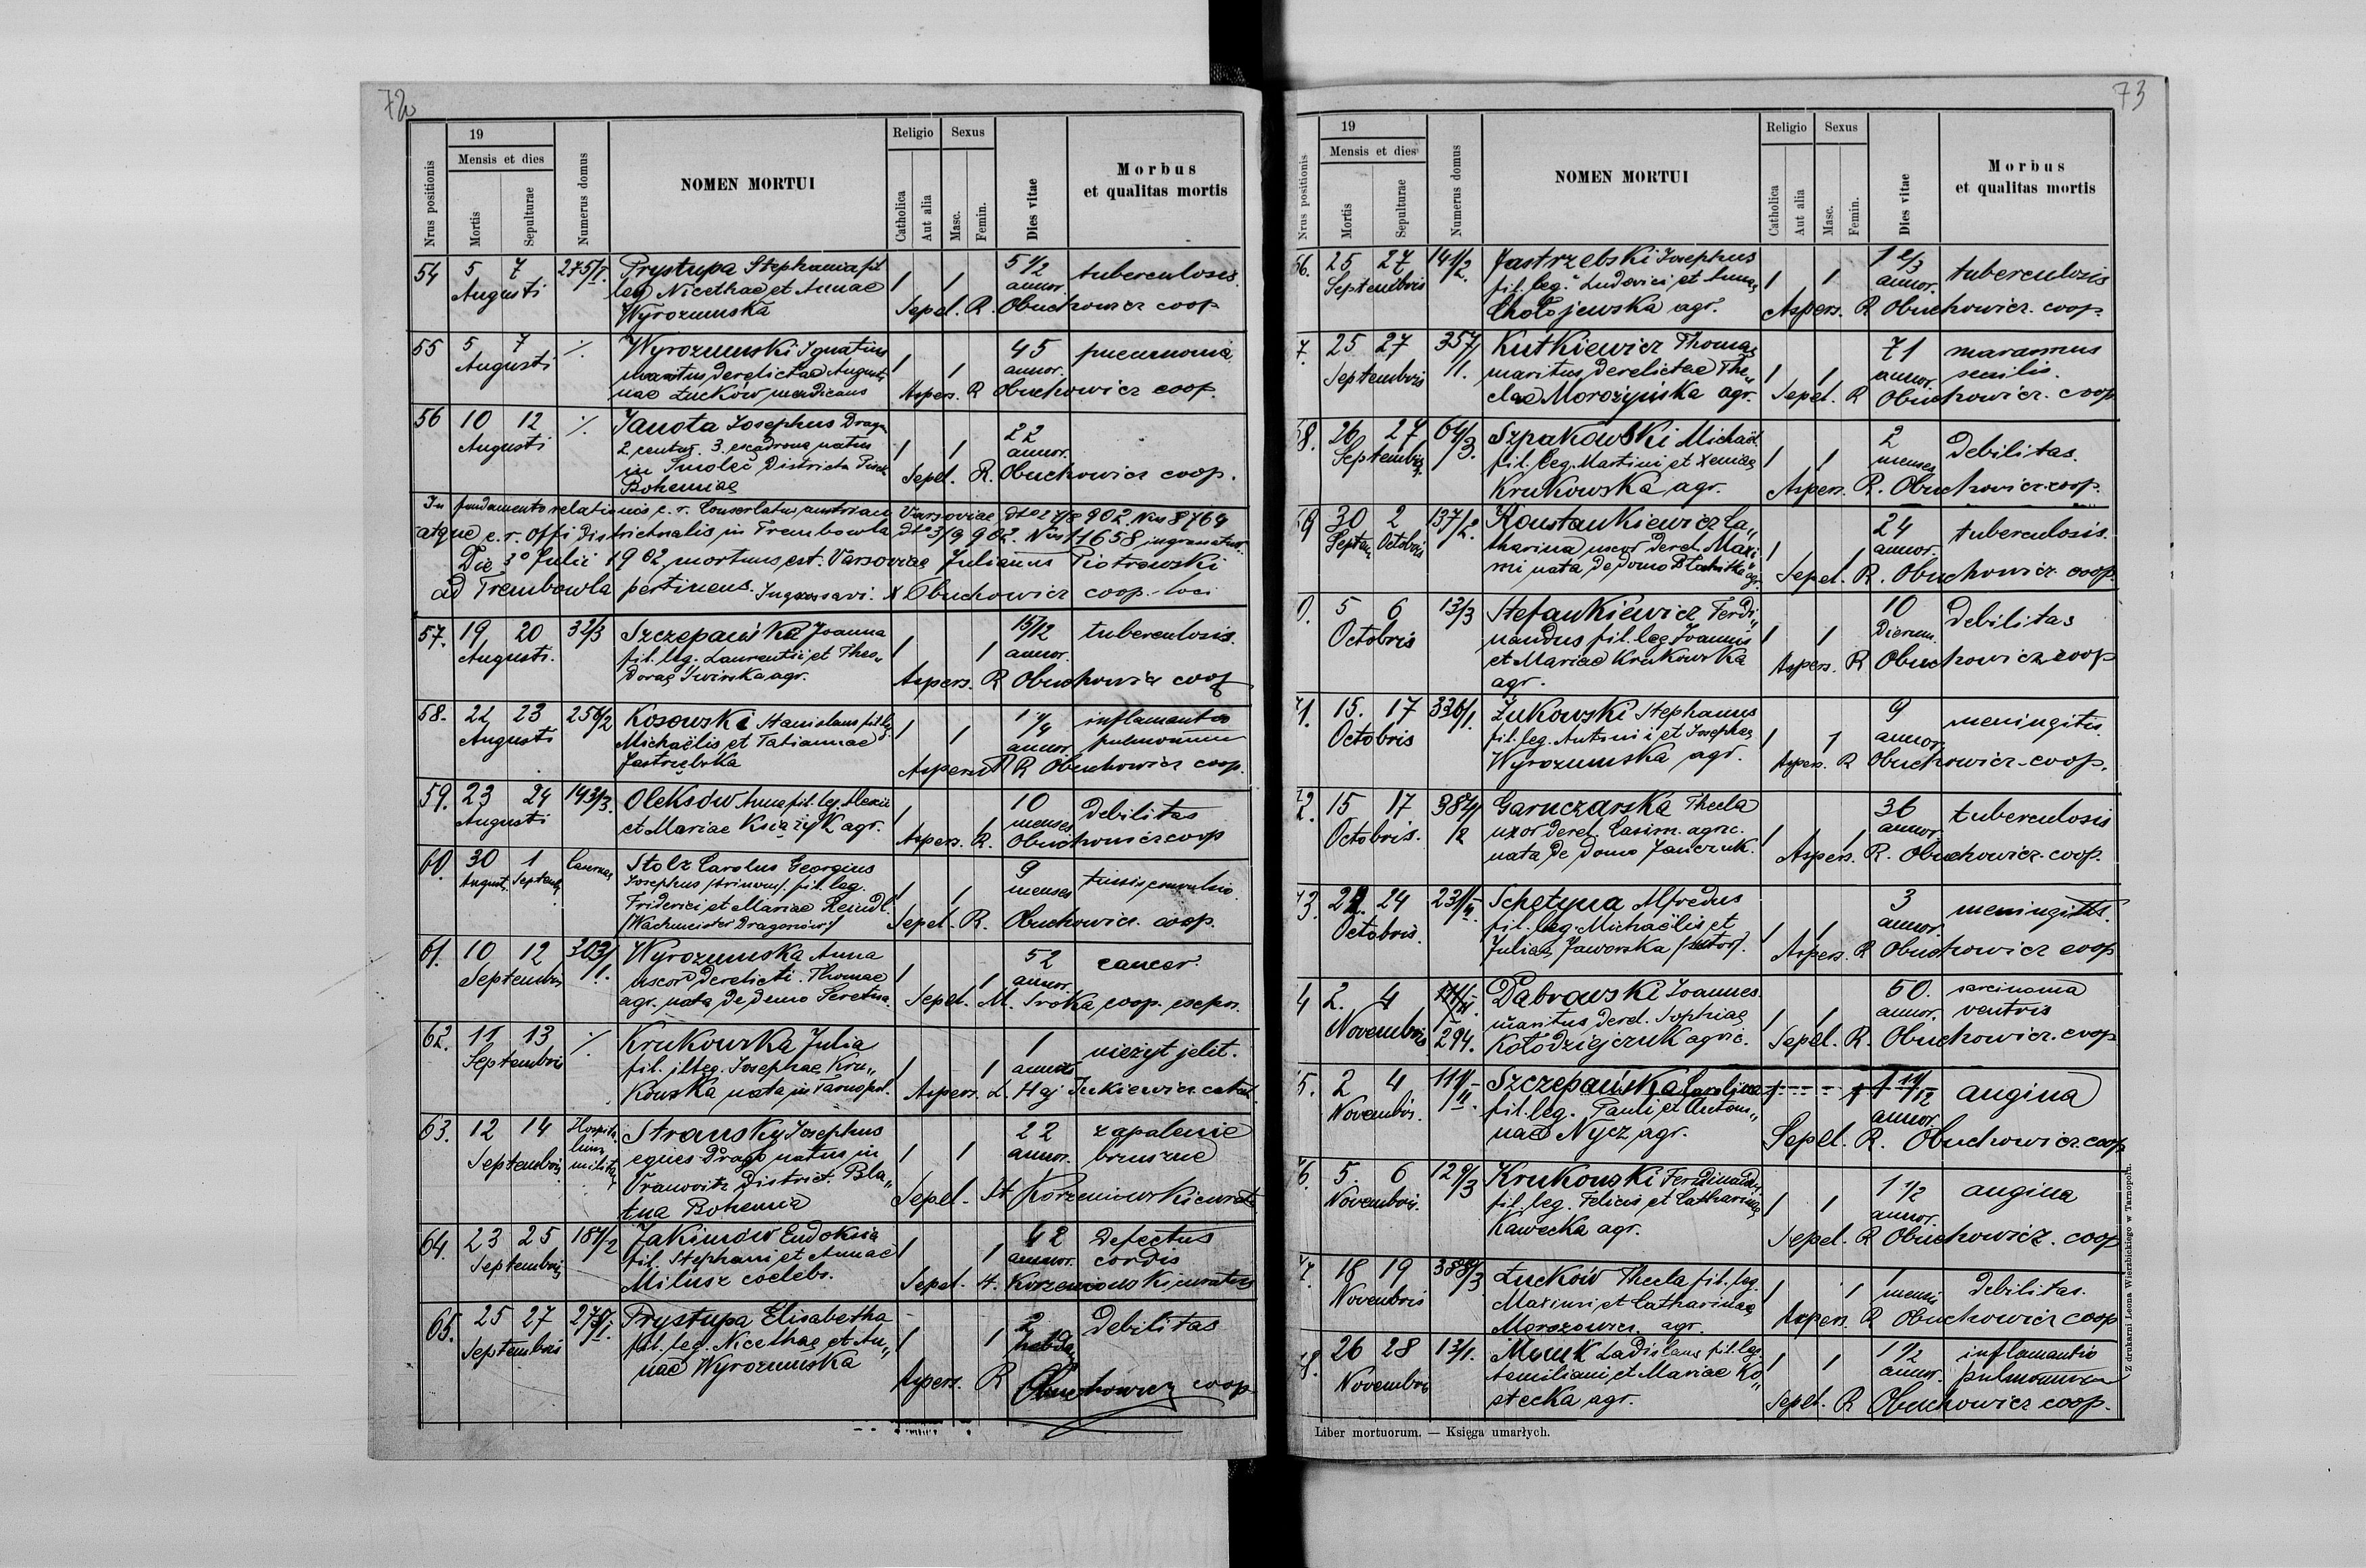 72
19
Mensis et dies
Religio Sexus
Nrus positionis
Mortis
Sepulturae
Numerus domus
NOMEN MORTUI
Catholica
Aut alia
Masc.
Femin.
Dies vitae
Morbus
et qualitas mortis
54 5 7 275/I. Prystupa Stephania fil 1 1 5 1/2 tuberculosis
Augusti leg Nicethae et Annae annor.
Wyrozumska Sepel. R. Obuchowicz coop
55 5 7 % Wyrozumski Ignatius 1 1 45 pneumonia
Augusti maritus derelictae Augusti annor.
nae Łuków mendicans Aspers. R Obuchowicz coop.
56 10 12 % Janota Josephus Drag. 1 1 22
Augusti 2 3. escadrona natus annor.
in Smoleč Districtu Pisek Sepel. R. Obuchowicz coop.
Bohemiae
In fundamento relationis c. r. Consulatus austriaci Varsoviae dto 27/8 902. Nro 8764
atque c. r. offi districtualis in Trembowla dto 3/9 902. Nro 11658 ingrossatur.
Die 30 Julii 1902 mortuus est. Varsoviae Julianus Piotrowski
ad Trembowla pertinens. Ingrossavi. R Obuchowicz coop. loci
57. 19 20 32/3 Szczepańska Joanna 1 1 15/12 tuberculosis.
Augusti. fil. leg. Laurentii et Theo„ annor.
dorae Świrska agr. Aspers. R Obuchowicz coop
58. 22 23 256/2 Kosowski Stanislaus fil leg. 1 1 1 1/4 inflamantio
Augusti Michaëlis et Tatiannae annor. pulmonum
Jastrzębska Aspersit R Obuchowicz coop.
59. 23 24 193/3. Oleksów Anna fil. leg. Alexii 1 1 10 Debilitas
Augusti et Mariae Książyk agr. menses
Aspers. R. Obuchowicz coop
60. 30 1 Casernae Stolz Carolus Georgius 1 1 9 tussis convulsiva
August. Septemb. Josephus fil. leg. menses
Friderici et Mariae Reindl.
/Wachmeister Dragonów/ Sepel. R. Obuchowicz. coop.
61. 10 12 303/1. Wyrozumska Anna 1 1 52 cancer.
Septembris uxor Derelicti. Thomae annor.
agr. nata de domo Seretna. Sepel. M. Sroka coop. expos.
62. 11 13 % Krukowska Julia 1 1 1 nieżyt jelit.
Septembris fil. illeg. Josephae Kru„ anni
kowska nata in Tarnopol. Aspers. L. Hajdukiewicz catech.
63. 12 14 Hospitalium militare Stransky Josephus 1 1 22 zapalenie
Septembris eques Drago natus in annor. brzuszne
Vranovitz District. Bla„
tna Bohemia Sepel. St Korzeniowski curatus
64. 23 25 187/2 Jakimów Eudokia 1 1 42 Defectus
Septembris fil. Stephani et Annae annor. cordis
Milusz coelebs. Sepel. St. Korzeniowski curatus
65. 25 27 275/I. Prystupa Elisabetha 1 1 2 Debilitas
Septembris fil. leg. Nicethae et An„
nae Wyrozumska Aspers. R Obuchowicz coop
73
19
Mensis et dies
Religio Sexus
Nrus positionis
Mortis
Sepulturae
Numerus domus
NOMEN MORTUI
Catholica
Aut alia
Masc.
Femin.
Dies vitae
Morbus
et qualitas mortis
66. 25 27 141/2. Jastrzebski Josephus 1 1 1 2/3 tuberculosis
Septembris fil. leg. Ludovici et Annae annor.
Chołojewska agr. Aspers. R Obuchowicz. coop.
7. 25 27 357/1. Kutkiewicz Thomas 1 1 71 marasmus
Septembris maritus derelictae The„ annor. senilis.
clae Morozińska agr. Sepel. R Obuchowicz. coop
8. 26 27 64/3. Szpakowski Michaël 1 1 2 Debilitas.
Septembris fil. leg. Martini et Xeniae menses
Krukowska agr. Aspers. R. Obuchowicz coop.
69 30 2 137/2. Konstankiewicz Ca„ 1 1 24 tuberculosis.
Septem. Octobris tharina uxor derel. Maxi annor.
mi nata de domo agr. Sepel. R. Obuchowicz coop.
0. 5 6 13/3 Stefankiewicz Ferdi„ 1 1 10 Debilitas
Octobris nandus fil. leg. Joannis Dierum.
et Mariae Krukowska Aspers. R Obuchowicz coop
agr.
71. 15. 17 336/1. Żukowski Stephanus 1 1 9 meningitis.
Octobris fil. leg. Antonii et Josephae annor.
Wyrozumska agr. Aspers. R Obuchowicz. coop.
72. 15 17 387/2 Garnczarska Thecla 1 1 36 tuberculosis
Octobris. uxor derel. Casim. agric. annor.
nata de domo Janczuk. Aspers. R. Obuchowicz. coop.
73. 22. 24 231/II. Schetyna Alfredus 1 1 3 meningitis.
Octobris. fil. leg. Michaëlis et annor.
Juliae Jaworska /sutor/. Aspers. R Obuchowicz coop
4 2. 4 294. Dąbrowski Joannes 1 1 50. carcinoma
Novembris maritus derel. Sophiae annor. ventris
Kołodziejczuk agric. Sepel. R. Obuchowicz. coop
5. 2 4 111/II. Szczepańska Carolina 1 1 1 11/12 angina
Novembris. fil. leg. Pauli et Anton„ annor.
nae Nycz agr. Sepel. R. Obuchowicz coop
76. 5. 6 129/3 Krukowski Ferdinandus 1 1 1 1/2 angina
Novembris. fil. leg. Felicis et Catharinae annor.
Kawecka agr. Sepel. R Obuchowicz. coop
7. 18 19 388/3 Łuców Thecla fil. leg. 1 1 1 Debilitas.
Novembris Maximi et Catharinae mensis
Morozowicz. agr. Aspers. R Obuchowicz coop
8. 26 28 13/1. Ladislaus fil. leg. 1 1 1 1/2 inflamantio
Novembris Aemiliani et Mariae Ko„ annor. pulmonum
stecka agr. Sepel. R Obuchowicz coop.
Liber mortuorum. — Księga umarłych.
Z drukarni Leona Wierzbickiego w Tarnopolu.